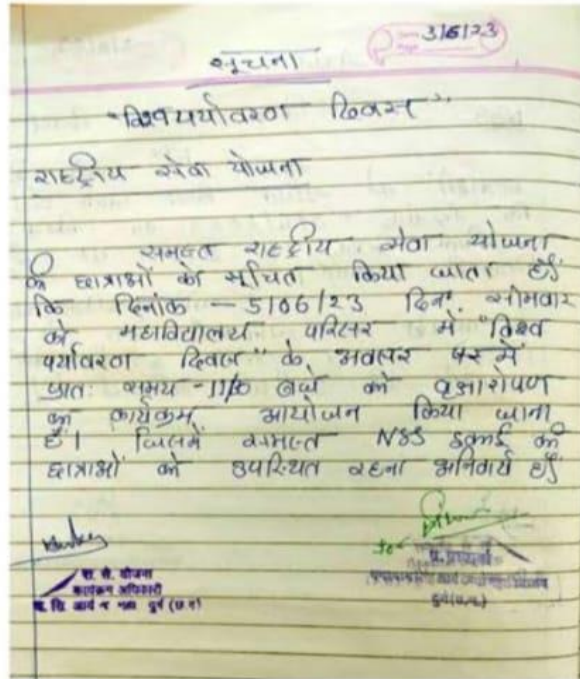 3/6/23
सूचना
"विश्व पर्यावरण दिवस"
राष्ट्रीय सेवा योजना
समस्त राष्ट्रीय सेवा योजना
की छात्राओं को सूचित किया जाता है
कि दिनांक - 5/06/23 दिन सोमवार
को महाविद्यालय परिसर में "विश्व
पर्यावरण दिवस" के अवसर पर में
प्रातः समय - 11/30 बजे को वृक्षारोपण
का कार्यक्रम आयोजन किया जाना
है। जिसमें समस्त NSS इकाई की
छात्राओं को उपस्थित रहना अनिवार्य है
रा. से. योजना
कार्यक्रम अधिकारी
आर्य दुर्ग (छ ग)
प्र. प्राचार्य
दुर्ग (छ.ग.)